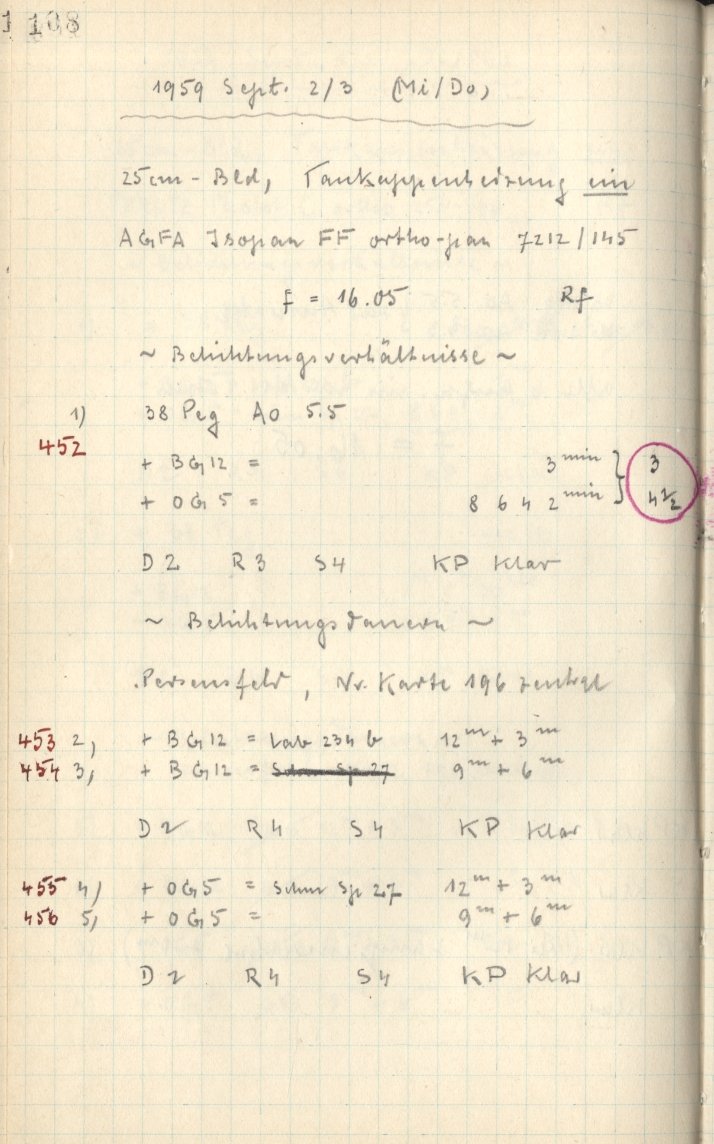 108
1959 Sept. 2/3 (Mi/Do)
25cm-Bld, Taukappenheizung ein
AGFA Isopan FF ortho-pan 7212/145
f = 16.05 Rf
~ Belichtungsverhältnisse ~
1) 38 Peg A0 5.5
452
+ BG12 = 3 min } 3
+ OG5 = 8 6 4 2 min } 4 1/2
D2 R3 S4 KP klar
~ Belichtungsdauern ~
Perseusfeld, Nr. Karte 196 zentral
453 2, + BG12 = Lab 234 b 12m + 3m
454 3, + BG12 = Schm Sp 27 9m + 6m
D2 R4 S4 KP klar
455 4) + OG5 = Schm Sp 27 12m + 3m
456 5, + OG5 = 9m + 6m
D2 R4 S4 KP klar